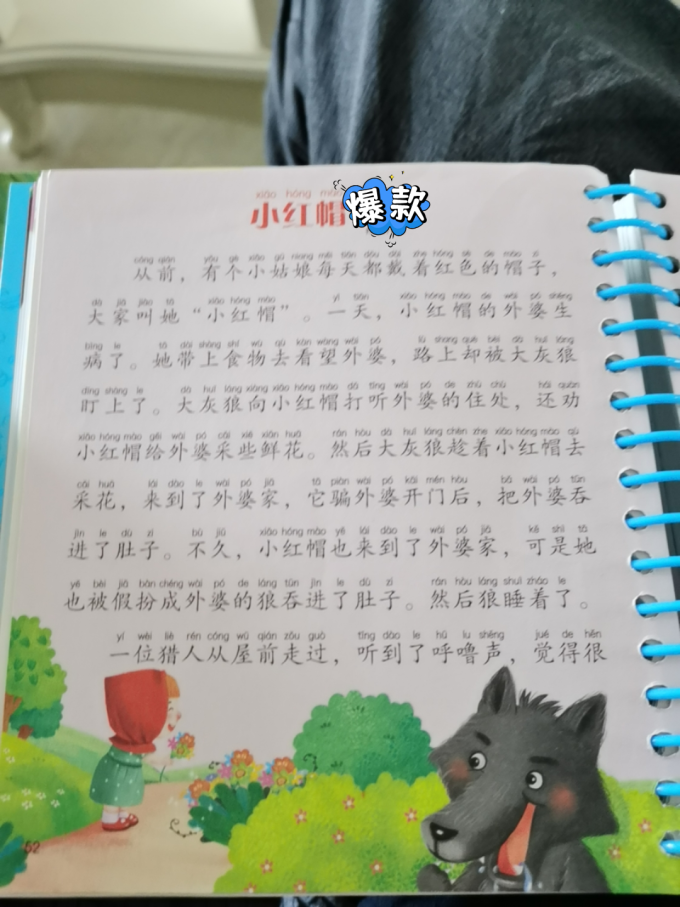 xiǎo hóng mào
小红帽
爆款
cóng qián yǒu gè xiǎo gū niang měi tiān dōu dài zhe hóng sè de mào zi
从前，有个小姑娘每天都戴着红色的帽子，
dà jiā jiào tā xiǎo hóng mào yì tiān xiǎo hóng mào de wài pó shēng
大家叫她“小红帽”。一天，小红帽的外婆生
bìng le tā dài shàng shí wù qù kàn wàng wài pó lù shang què bèi dà huī láng
病了。她带上食物去看望外婆，路上却被大灰狼
dīng shàng le dà huī láng xiàng xiǎo hóng mào dǎ tīng wài pó de zhù chù hái quàn
盯上了。大灰狼向小红帽打听外婆的住处，还劝
xiǎo hóng mào gěi wài pó cǎi xiē xiān huā rán hòu dà huī láng chèn zhe xiǎo hóng mào qù
小红帽给外婆采些鲜花。然后大灰狼趁着小红帽去
cǎi huā lái dào le wài pó jiā tā piàn wài pó kāi mén hòu bǎ wài pó tūn
采花，来到了外婆家，它骗外婆开门后，把外婆吞
jìn le dù zi bù jiǔ xiǎo hóng mào yě lái dào le wài pó jiā kě shì tā
进了肚子。不久，小红帽也来到了外婆家，可是她
yě bèi jiǎ bàn chéng wài pó de láng tūn jìn le dù zi rán hòu láng shuì zháo le
也被假扮成外婆的狼吞进了肚子。然后狼睡着了。
yí wèi liè rén cóng wū qián zǒu guò tīng dào le hū lu shēng jué de hěn
一位猎人从屋前走过，听到了呼噜声，觉得很
52